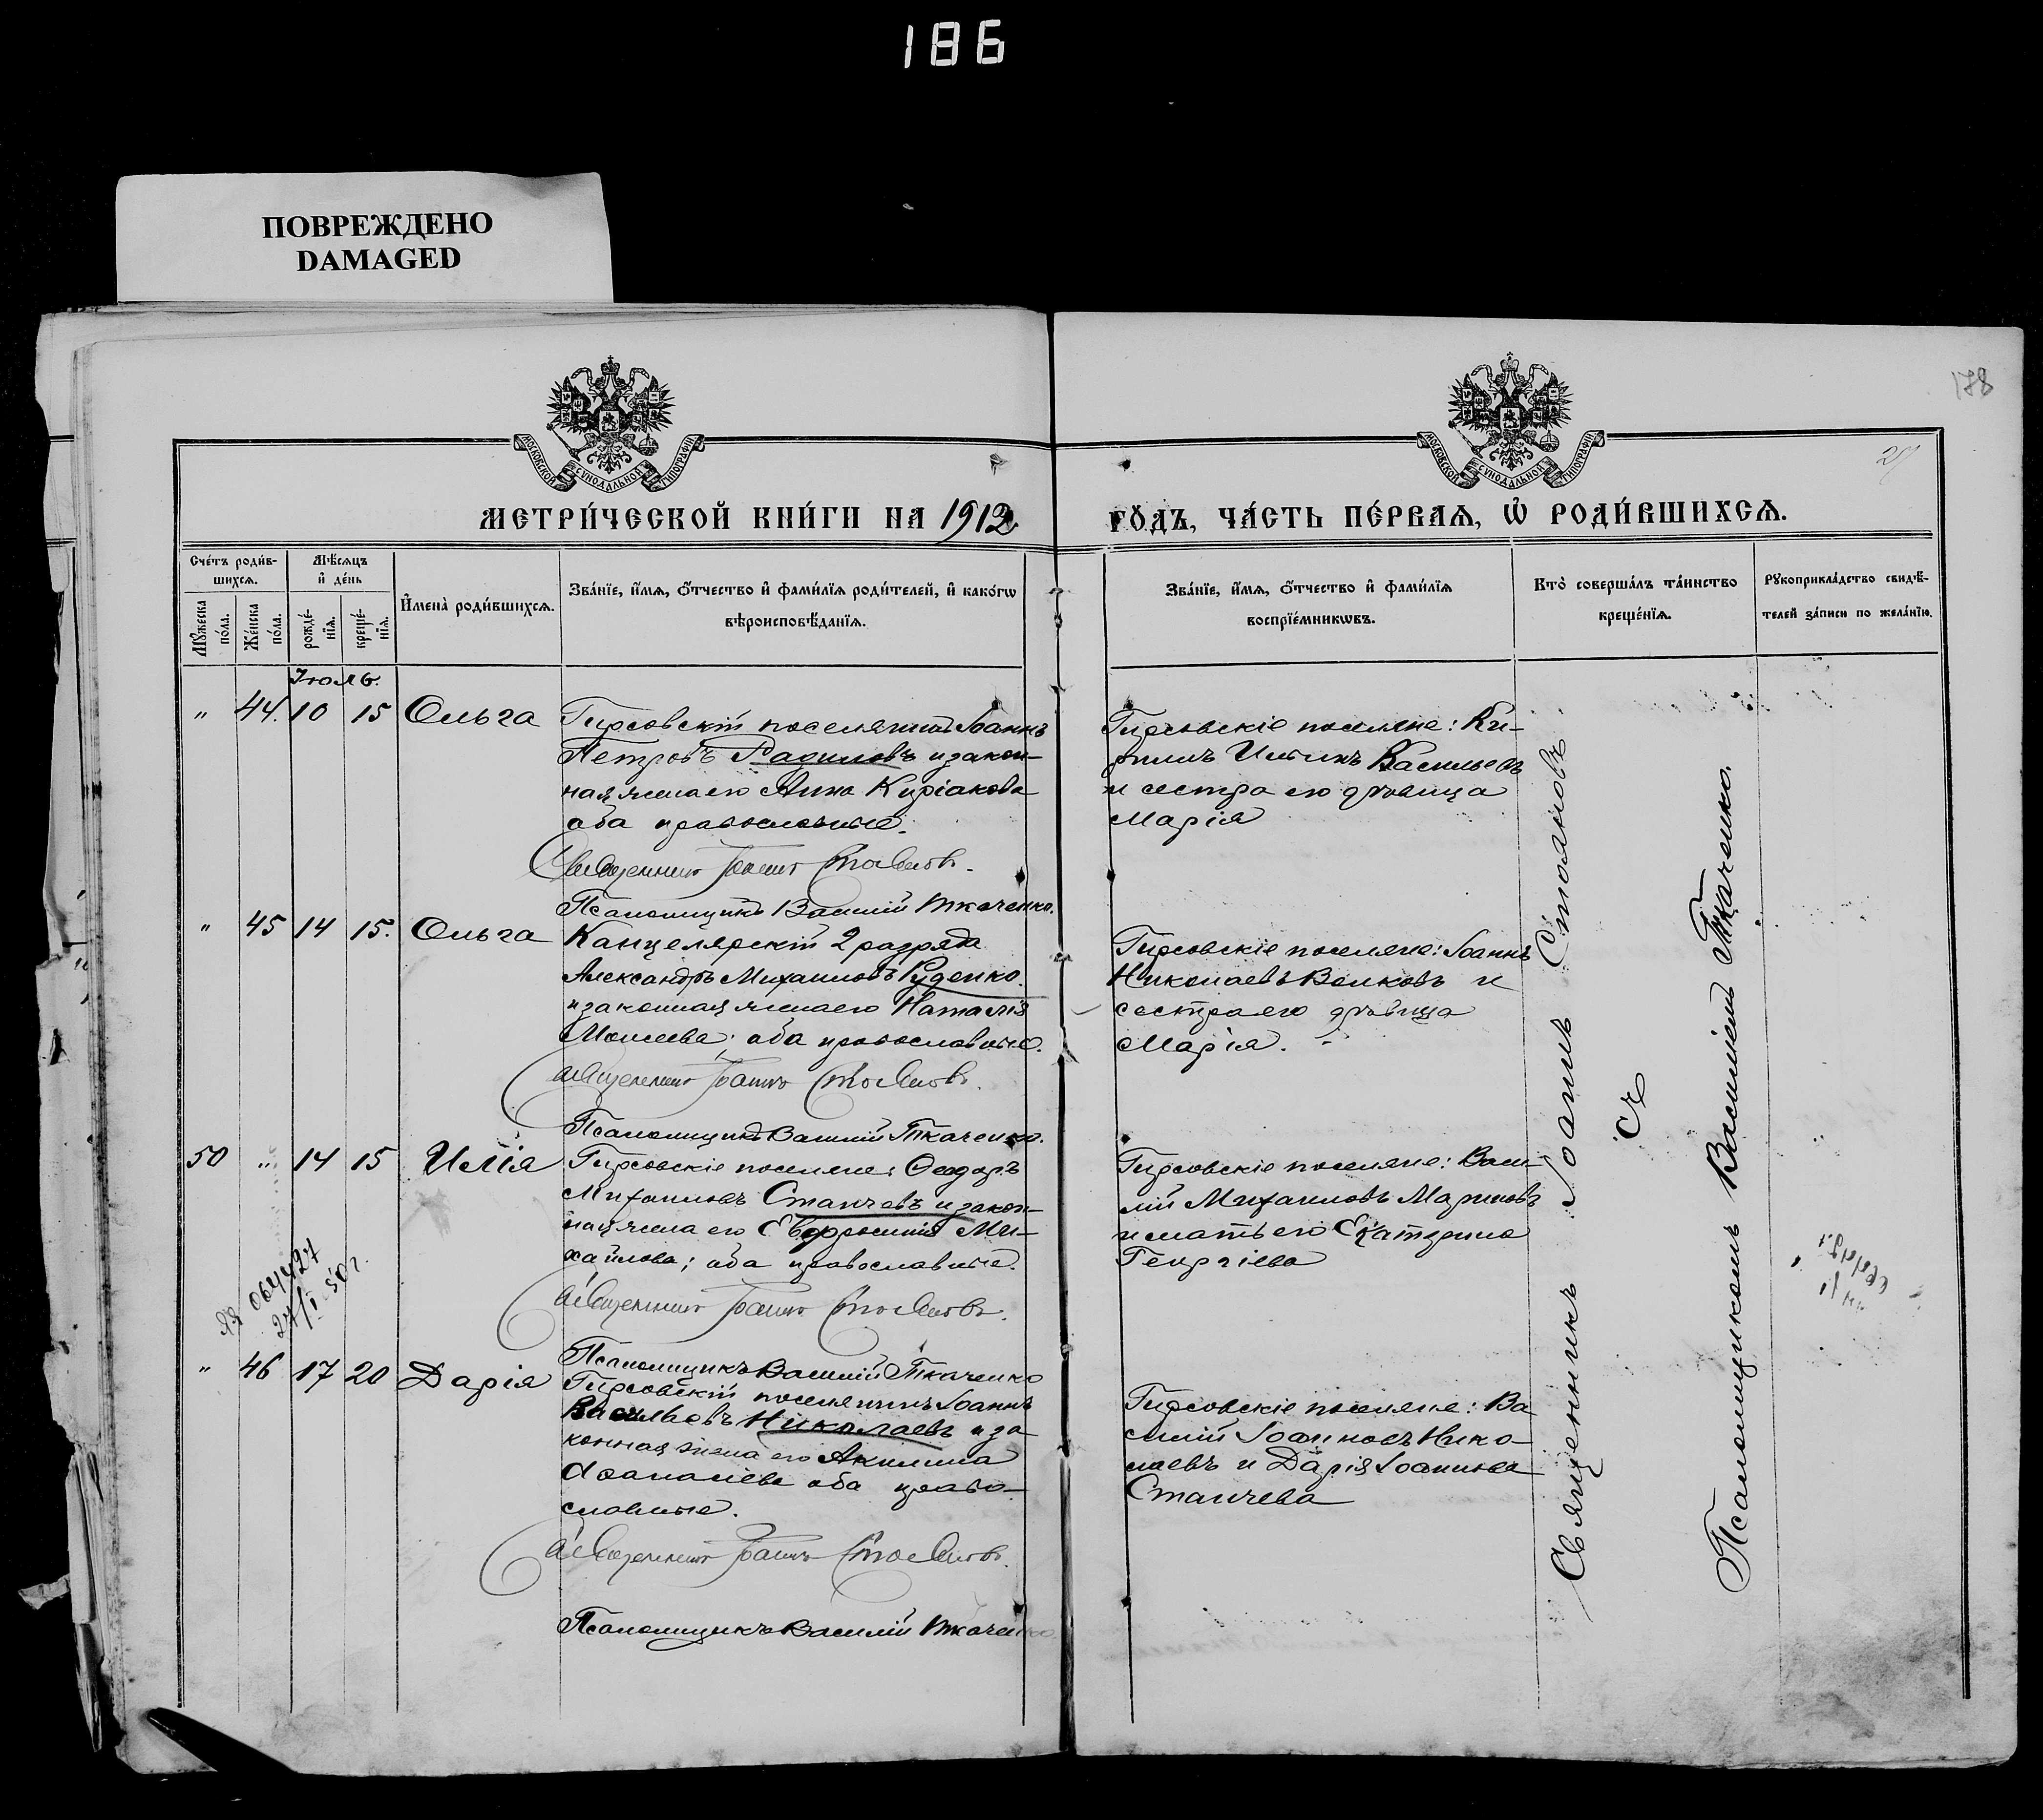 186
ПОВРЕЖДЕНО
DAMAGED
178
27
МОСКОВСКОЙ СѴНОДАЛЬНОЙ ТИПОГРАФІИ
МОСКОВСКОЙ СѴНОДАЛЬНОЙ ТИПОГРАФІИ
МЕТРИ́ЧЕСКОЙ КНИ́ГИ НА 1912 ГО́ДЪ, ЧА́СТЬ ПЕ́РВАѦ, Ѡ҆ РОДИ́ВШИХСѦ.
Сче́тъ роди́в-
шихсѧ.
Мѣ́сѧцъ
и҆ де́нь
Мꙋ́жеска
по́ла.
Же́нска
по́ла.
рожде́-
нїѧ.
креще́-
нїѧ.
И҆мена̀ роди́вшихсѧ.
Зва́нїе, и҆́мѧ, ѻ҆́тчество и҆ фами́лїѧ роди́телей, и҆ како́гѡ
вѣроисповѣ́данїѧ.
Зва́нїе, и҆́мѧ, ѻ҆́тчество и҆ фами́лїѧ
воспрїе́мникѡвъ.
Кто̀ соверша́лъ та́инство
креще́нїѧ.
Рꙋкоприкла́дство свидѣ́-
телей за́писи по жела́нїю.
Іюль.
" 44. 10 15 Ольга
Гирсовскій поселянинъ Іоаннъ
Петровъ Радиловъ и закон-
ная жена его Анна Киріакова
оба православные.
Священникъ Іоаннъ Стояновъ.
Псаломщикъ Василій Ткаченко.
Гирсовскіе поселяне: Ки-
риллъ Ильинъ Васильевъ
и сестра его дѣвица
Марія
" 45 14 15. Ольга
Канцелярскій 2 разряда
Александръ Михаиловъ Руденко
и законная жена его Наталія
Моисеева; оба православные.
Священникъ Іоаннъ Стояновъ.
Псаломщикъ Василій Ткаченко.
Гирсовскіе поселяне: Іоаннъ
Николаевъ Волковъ и
сестра его дѣвица
Марія.
50 " 14 15 Илія
Гирсовскіе поселяне: Ѳеодоръ
Михаиловъ Станчевъ и закон-
ная жена его Евфросинія Ми-
хайлова; оба православные.
Священникъ Іоаннъ Стояновъ.
Псаломщикъ Василій Ткаченко
Гирсовскіе поселяне: Васи-
лій Михаиловъ Мариновъ
и мать его Екатерина
Георгіева
064424
24/I 50 г.
" 46 17 20 Дарія
Гирсовскій поселянинъ Іоаннъ
Васильевъ Николаевъ и за-
конная жена его Акилина
Аѳанасіева оба право-
славные.
Священникъ Іоаннъ Стояновъ.
Псаломщикъ Василій Ткаченко
Гирсовскіе поселяне: Ва
силій Іоанновъ Нико-
лаевъ и Дарія Іоаннова
Станчева
Священникъ Іоаннъ Стояновъ
съ
Псаломщикомъ Василіемъ Ткаченко.